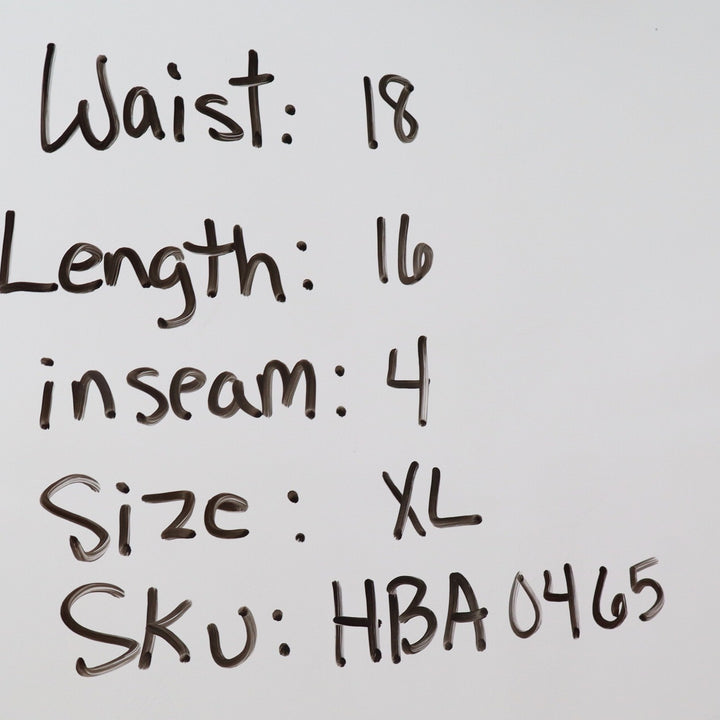 Waist: 18
Length: 16
inseam: 4
Size: XL
Sku: HBA0465